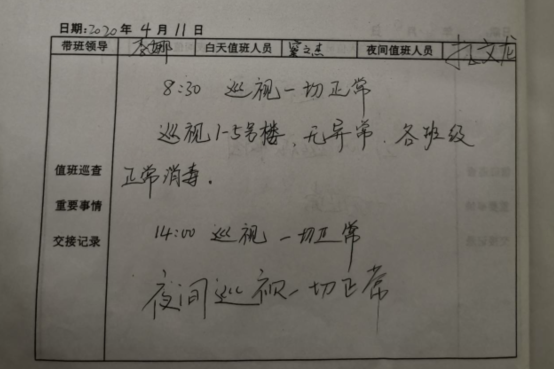 日期:2020年4月11日
带班领导 李娜 白天值班人员 夜间值班人员
8:30 巡视一切正常
巡视1-5号楼,无异常.各班级
值班巡查 正常消毒.
重要事情
交接记录 14:00 巡视 一切正常
夜间巡视一切正常